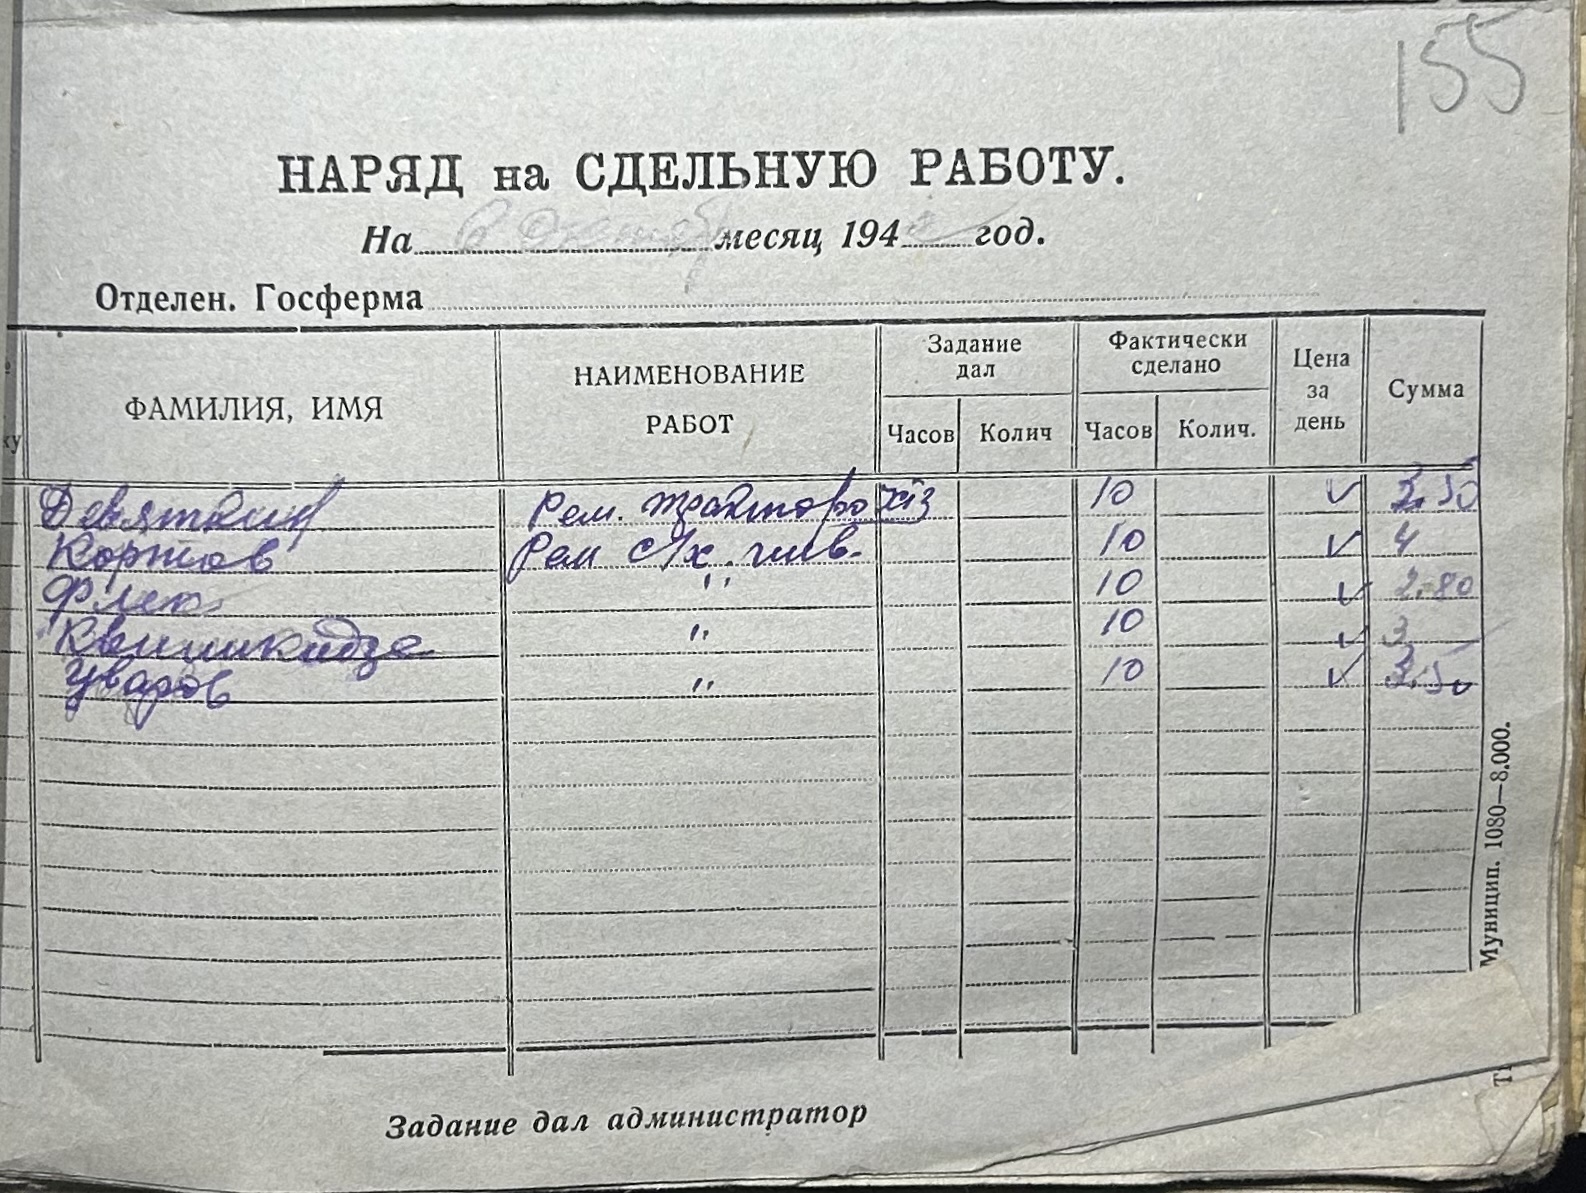 155
НАРЯД на СДЕЛЬНУЮ РАБОТУ.
На 6 Октябр месяц 194 год.
Отделен. Госферма
ФАМИЛИЯ, ИМЯ НАИМЕНОВАНИЕ РАБОТ Задание дал Фактически сделано Цена за день Сумма
Часов Колич Часов Колич.
ку
Девяткин Рем. трактора хтз 10 ✓ 3.50
Коржов Рем с/х. инв. 10 ✓ 4
Флек " 10 ✓ 2.80
" 10 ✓ 3
Уваров " 10 ✓ 3.50
Муницип. 1080—8.000.
Задание дал администратор